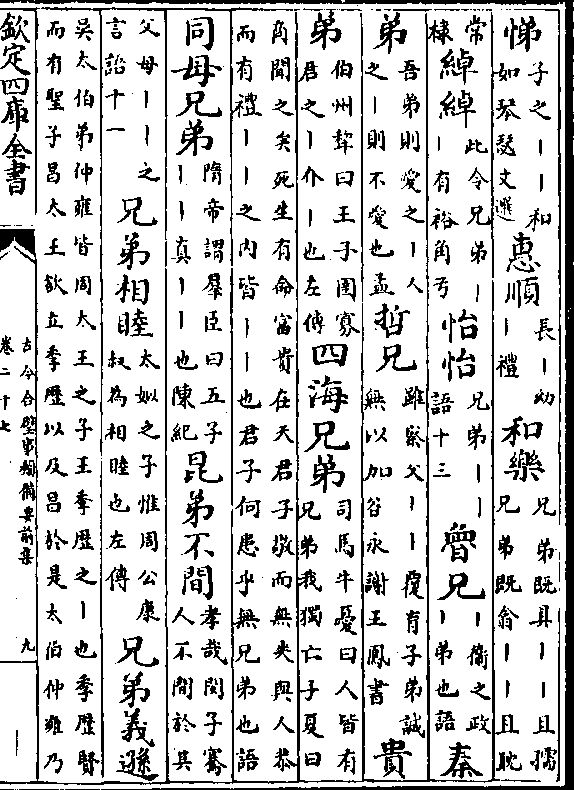 悌子之丨丨和如琴瑟文選惠順長丨幼丨禮和樂兄弟既具丨丨且孺兄弟既翕丨丨且耽
常棣綽綽此令兄弟丨丨有裕角弓怡怡兄弟丨丨語十三魯兄丨衛之政丨弟也語秦
弟吾弟則愛之丨人之丨則不愛也孟哲兄雖察父丨丨覆育子弟誠無以加谷永謝王鳳書貴
弟伯州犂曰王子圍寡君之丨介丨也左傳四海兄弟司馬牛憂曰人皆有兄弟我獨亡子夏曰
商聞之矣死生有命富貴在天君子敬而無失與人恭
而有禮丨丨之内皆丨丨也君子何患乎無兄弟也語
同母兄弟隋帝謂羣臣曰五子丨丨真丨丨也陳紀昆弟不間孝哉閔子騫人不間於其
父母丨丨之言語十一兄弟相睦太姒之子惟周公康叔為相睦也左傳兄弟義遜
吳太伯弟仲雍皆周太王之子王季歷之丨也季歷賢
而有聖子昌太王欲立季歷以及昌於是太伯仲雍乃
欽定四庫全書
古今合璧事類備要前集
卷二十七
九